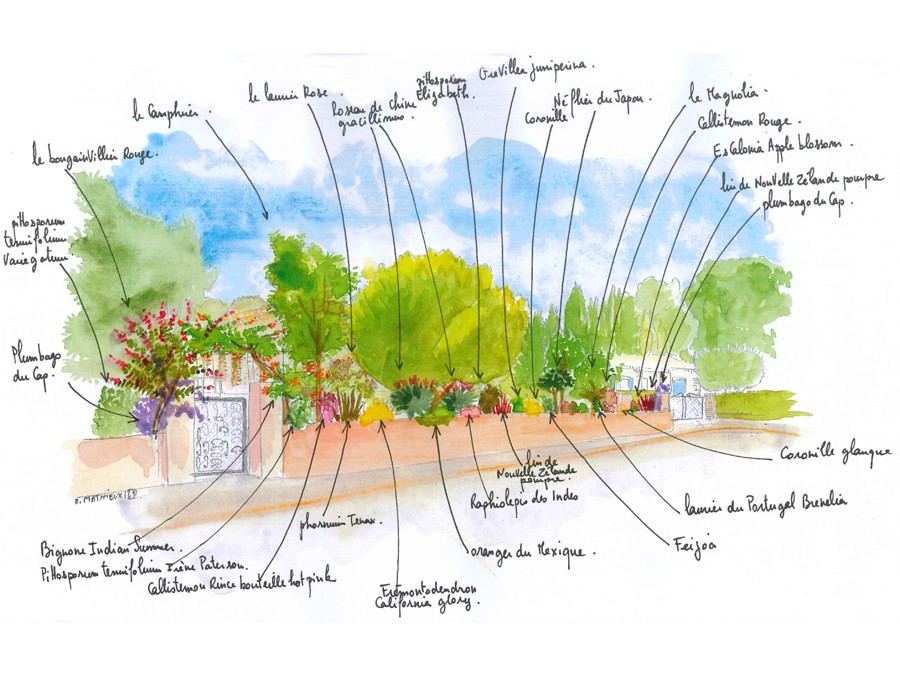 le Camphrier.
le laurier Rose.
Roseau de Chine
gracillimus.
pittosporum
Elizabeth.
Grevillea juniperina.
Coronille
Néflier du Japon.
le Magnolia.
Callistemon Rouge.
Escalonia Apple blossom.
lin de Nouvelle Zélande pourpre
plumbago du Cap.
le bougainvillier Rouge.
pittosporum
tenuifolium
Variegatum.
Plumbago
du Cap.
B. MATHIEUX
Coronille glauque
laurier du Portugal Brenelia
Feijoa
oranger du Mexique.
lin de
Nouvelle Zélande
pourpre.
Raphiolepis des Indes
phormium Tenax.
Fremontodendron
California glory.
Bignone Indian Summer.
Pittosporum tenuifolium Irène Paterson.
Callistemon Rince bouteille hot pink